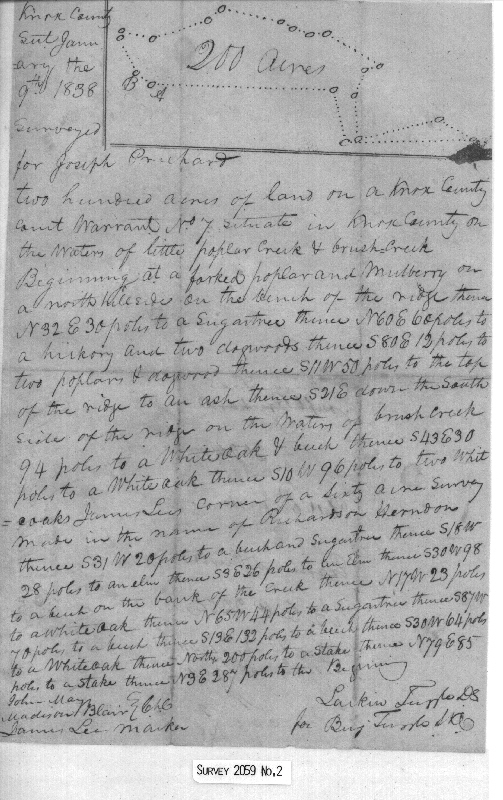 Knox County
Sct Janu
ary the
9th 1838
200 Acres
B A
Surveyed
for Joseph Prichard
two hundred acres of land on a Knox County
Court Warrant No 7 situate in Knox County on
the Waters of little poplar Creek & brush Creek
Beginning at a forked poplar and Mulberry on
a north hillside on the bench of the ridge thence
N32E 30 poles to a Sugartree thence N60E 60 poles to
a hickory and two dogwoods thence S80E 12 poles to
two poplars & dogwood thence S11W 50 poles to the top
of the ridge to an ash thence S21E down the South
side of the ridge on the Waters of brush Creek
94 poles to a White Oak & beech thence S43E 30
poles to a White oak thence S10W 96 poles to two White
= oaks James Lees Corner of a Sixty acre Survey
made in the name of Richardson Herndon
thence S31W 20 poles to a beech and Sugartree thence S18W
28 poles to an elm thence S3E 26 poles to an Elm thence S30W 98
to a beech on the bank of the Creek thence N17W 23 poles
to a White oak thence N65W 44 poles to a Sugartree thence S87W
70 poles to a beech thence S13E 132 poles to a beech thence S30W 64 poles
to a White oak thence North 200 poles to a Stake thence N79E 85
poles to a stake thence N3E 287 poles to the Beginning
John Mays
Madison Blair } ChC
James Lee Marker
Larkin Tuggle DS
for Benj Tuggle SKC
SURVEY 2059 No.2